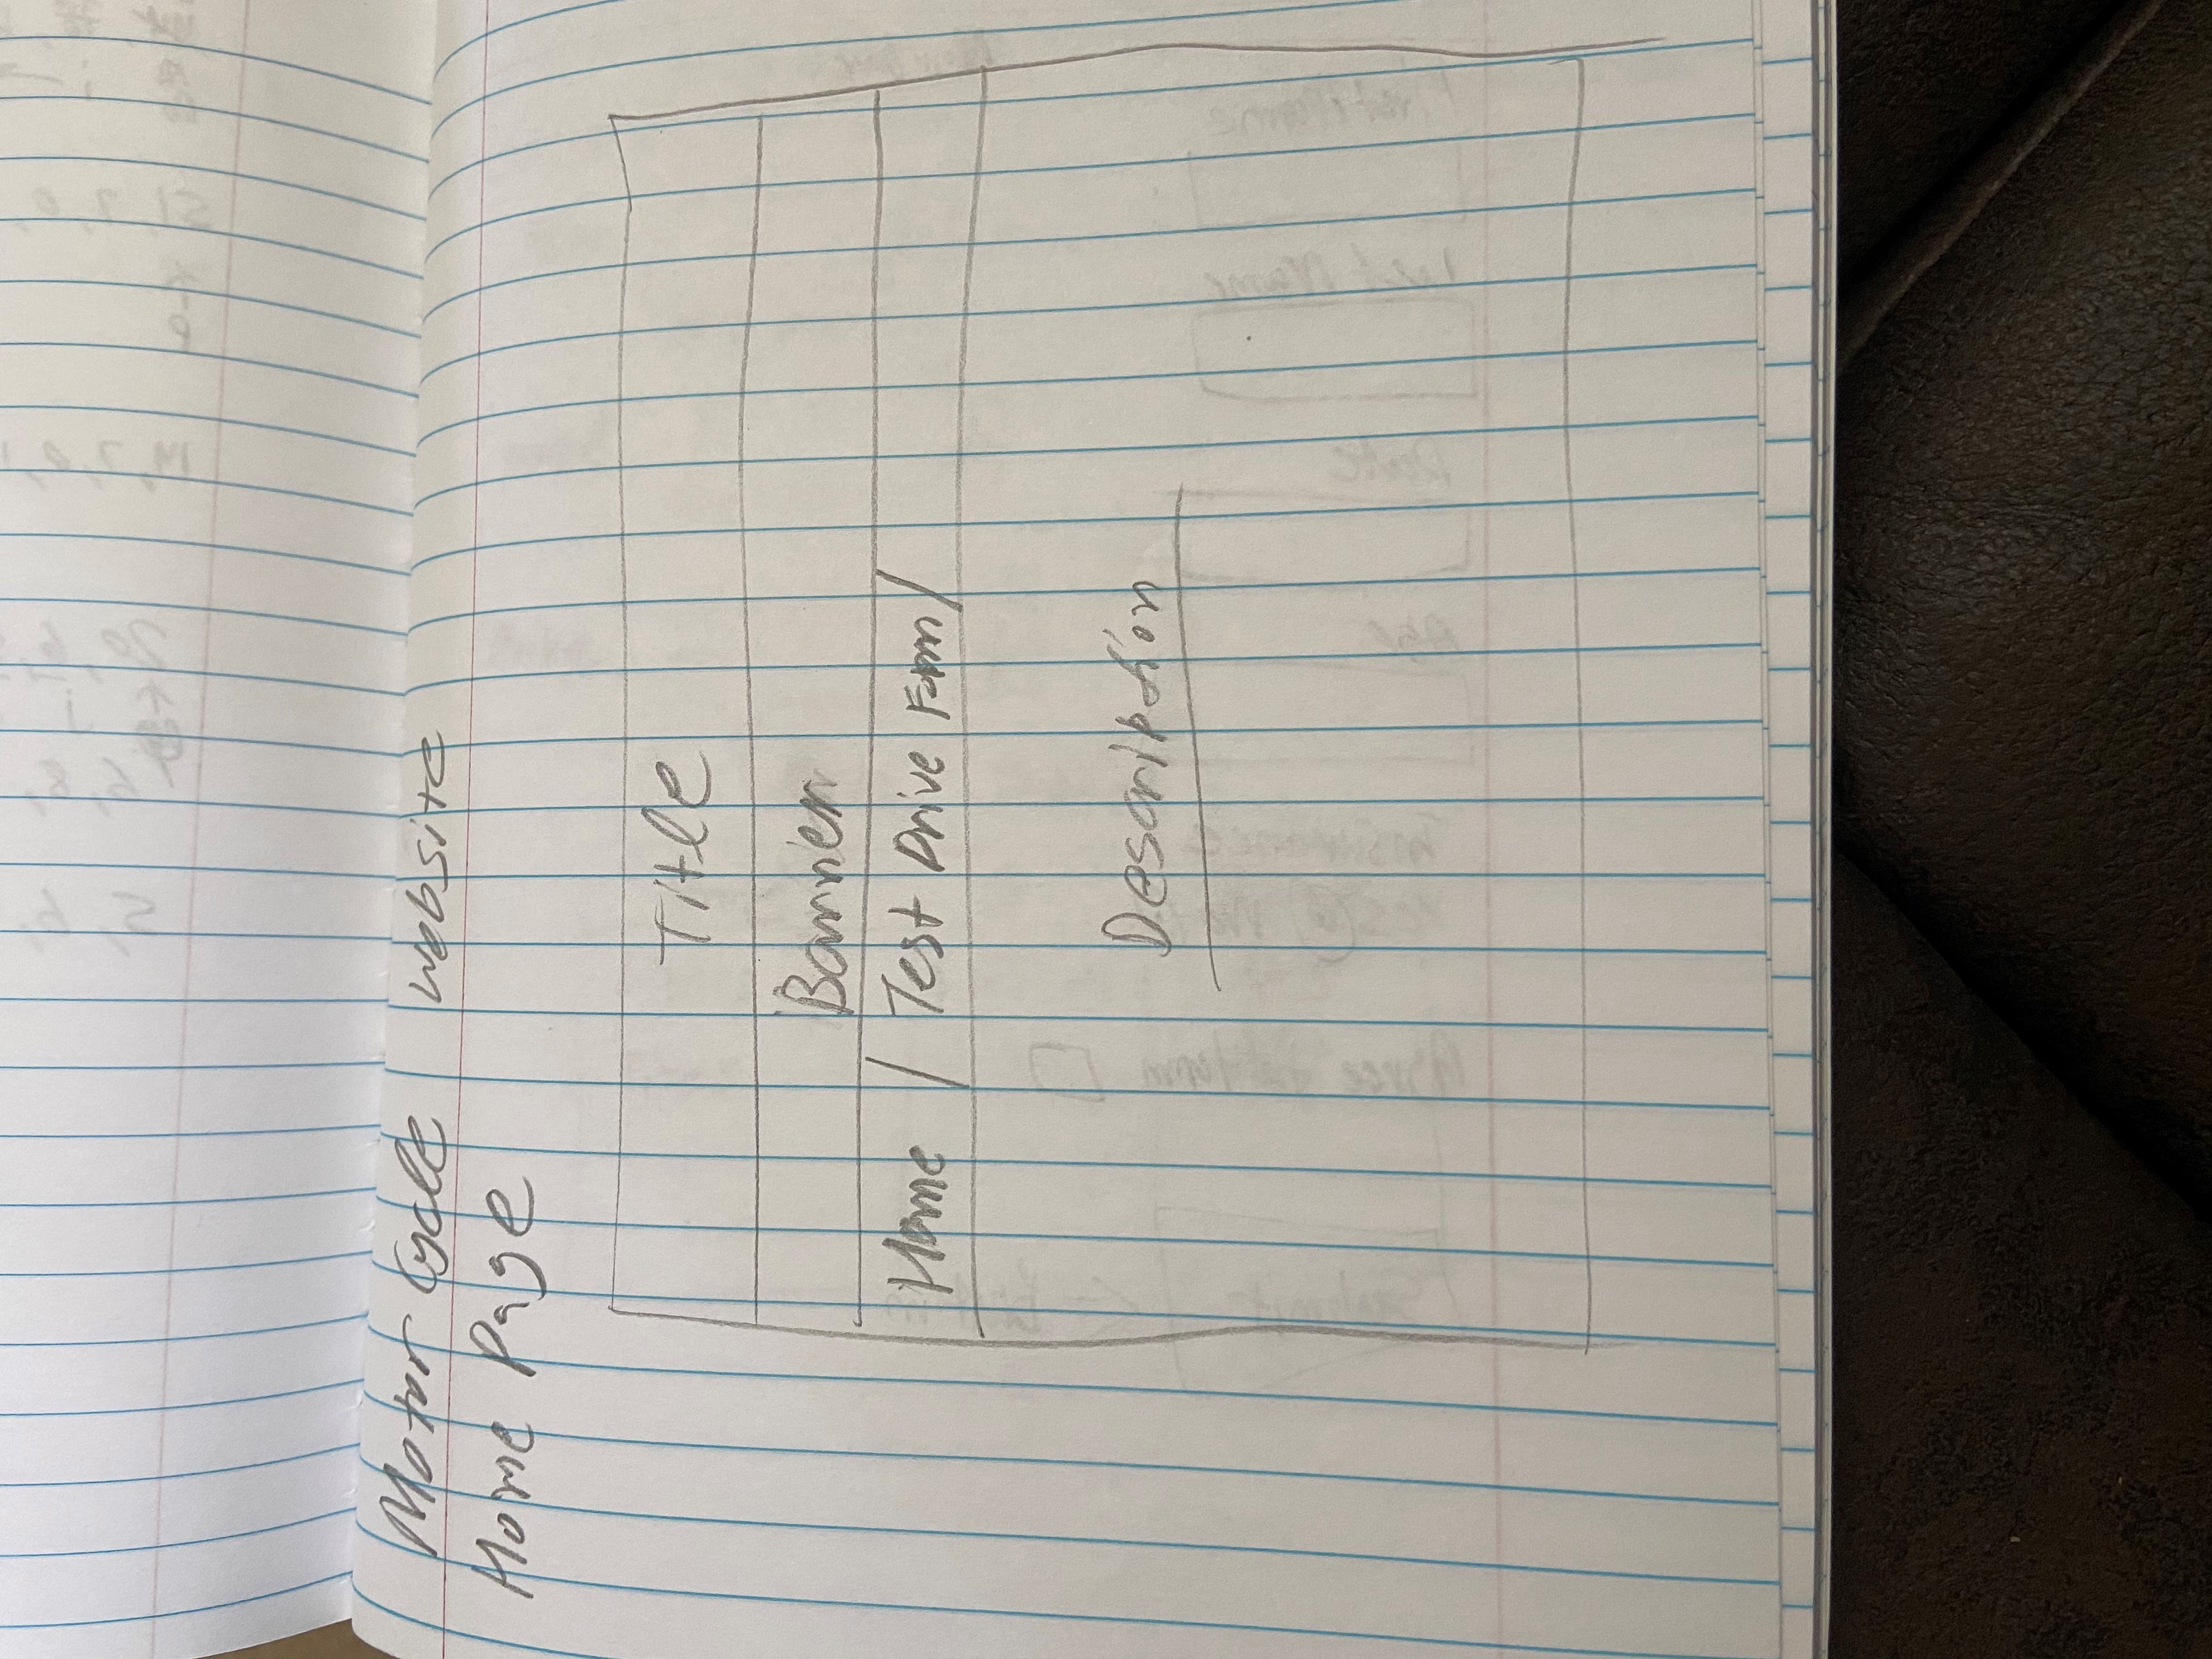 Motor Cycle Website
Home Page
Title
Banner
Home / Test Drive Form /
Description